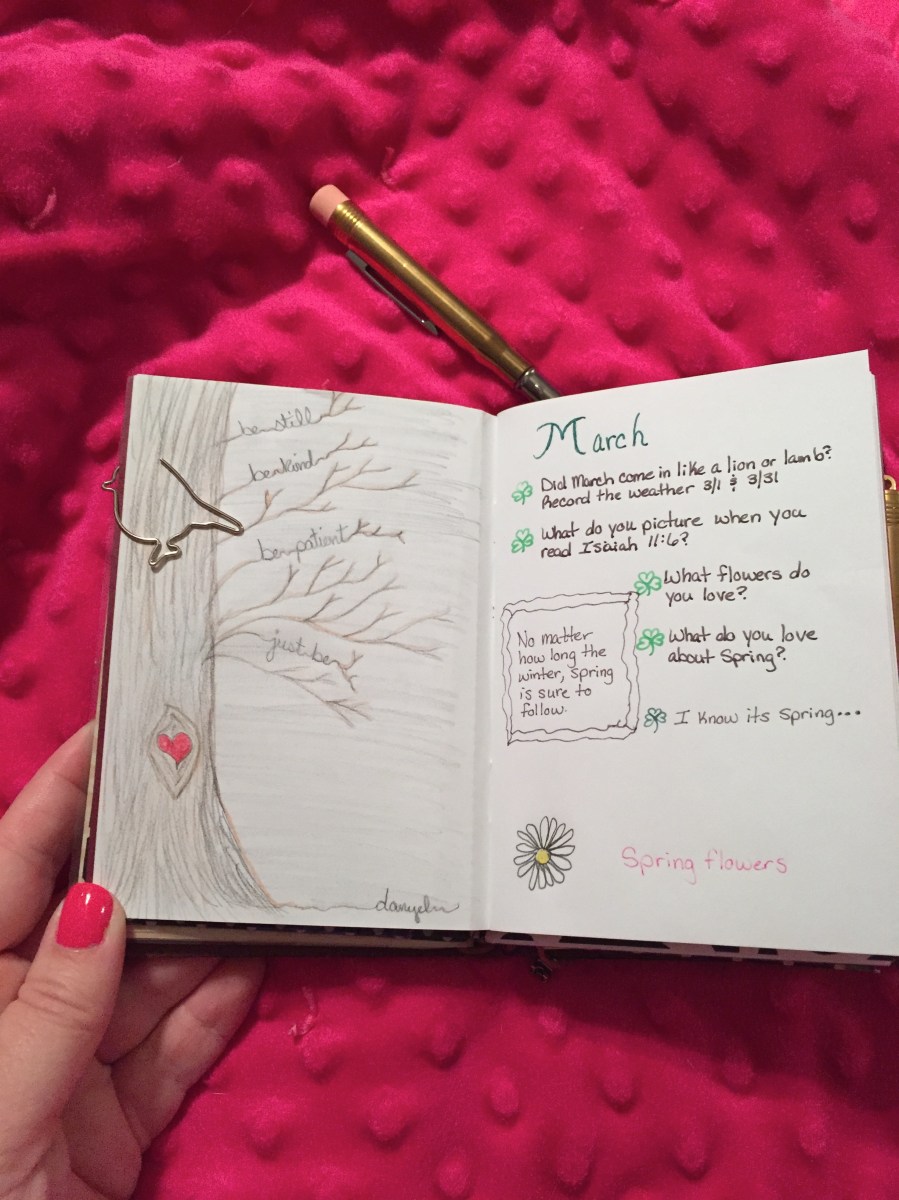 be still
be kind
be patient
just be
danyel
March
Did March come in like a lion or lamb?
Record the weather 3/1 & 3/31
What do you picture when you
read Isaiah 11:6?
What flowers do
you love?
No matter
how long the
winter, spring
is sure to
follow.
What do you love
about Spring?
I know its Spring...
Spring flowers